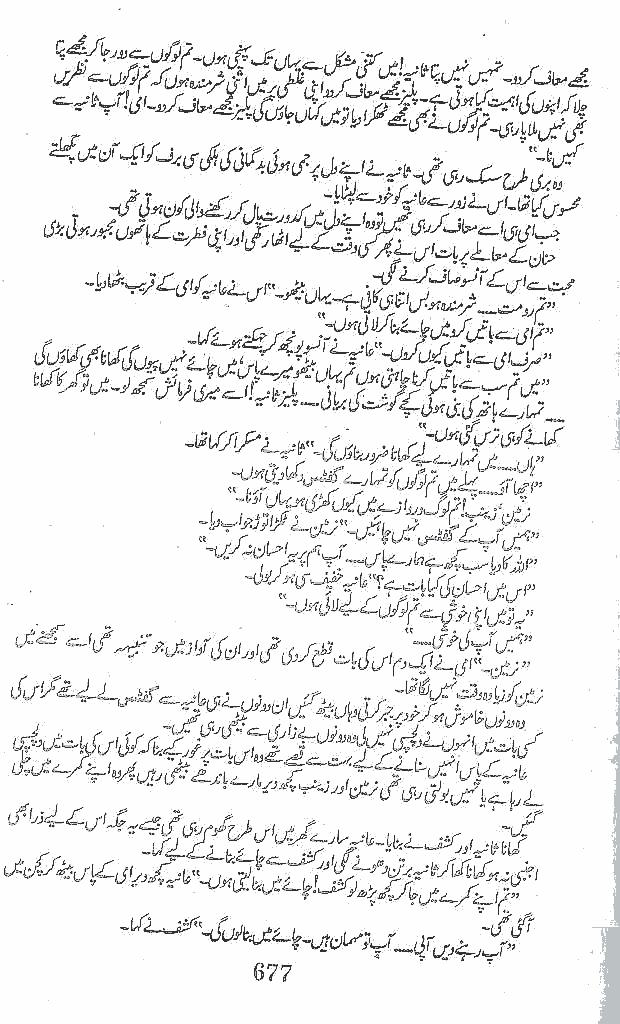 مجھے معاف کردو۔ تمہیں نہیں پتا ثانیہ! میں کتنی مشکل سے یہاں تک پہنچی ہوں۔ تم لوگوں سے دور جا کر مجھے پتا
چلا کہ اپنوں کی اہمیت کیا ہوتی ہے۔ پلیز مجھے معاف کردو اپنی غلطی پر میں اتنی شرمندہ ہوں کہ تم لوگوں سے نظریں
بھی نہیں ملا پا رہی۔ تم لوگوں نے بھی مجھے ٹھکرا دیا تو میں کہاں جاؤں گی پلیز مجھے معاف کردو۔ امی! آپ ثانیہ سے
کہیں نا۔“
وہ بری طرح سسک رہی تھی۔ ثانیہ نے اپنے دل پر جمی ہوئی بدگمانی کی ہلکی سی برف کو ایک آن میں پگھلتے
محسوس کیا تھا۔ اس نے زور سے عانیہ کو خود سے لپٹا لیا۔
جب امی ہی اسے معاف کر رہی تھیں تو وہ اپنے دل میں کدورت پال کر رکھنے والی کون ہوتی تھی۔
حنان کے معاملے پر بات اس نے پھر کسی وقت کے لیے اٹھا رکھی اور اپنی فطرت کے ہاتھوں مجبور ہوتی بڑی
محبت سے اس کے آنسو صاف کرنے لگی۔
”تم رو مت.... شرمندہ ہو بس اتنا ہی کافی ہے۔ یہاں بیٹھو۔“ اس نے عانیہ کو امی کے قریب بٹھا دیا۔
”تم امی سے باتیں کرو میں چائے بنا کر لاتی ہوں۔“
”صرف امی سے باتیں کیوں کروں۔“ عانیہ نے آنسو پونچھ کر چہکتے ہوئے کہا۔
”میں تم سب سے باتیں کرنا چاہتی ہوں تم یہاں بیٹھو میرے پاس، میں چائے نہیں پیوں گی کھانا بھی کھاؤں گی
.... تمہارے ہاتھ کی بنی ہوئی کچے گوشت کی بریانی.... پلیز ثانیہ! اسے میری فرمائش سمجھ لو۔ میں تو گھر کا کھانا
کھانے کو ہی ترس گئی ہوں۔“
”ہاں.... میں تمہارے لیے کھانا ضرور بناؤں گی۔“ ثانیہ نے مسکرا کر کہا تھا۔
”اچھا آؤ.... پہلے میں تم لوگوں کو تمہارے گفٹس دکھا دیتی ہوں۔
نرمین، زینب! تم لوگ دروازے میں کیوں کھڑی ہو یہاں آؤ نا۔“
”ہمیں آپ کے گفٹس نہیں چاہئیں۔“ نرمین نے ٹکڑا توڑ جواب دیا۔
”اللہ کا دیا سب کچھ ہے ہمارے پاس.... آپ ہم پر یہ احسان نہ کریں۔“
”اس میں احسان کی کیا بات ہے؟“ عانیہ خفیف سی ہو کر بولی۔
”یہ تو میں اپنی خوشی سے تم لوگوں کے لیے لائی ہوں۔“
”ہمیں آپ کی خوشی....“
”نرمین۔“ امی نے ایک دم اس کی بات قطع کردی تھی اور ان کی آواز میں جو تنبیہہ تھی اسے سمجھنے میں
نرمین کو زیادہ وقت نہیں لگا تھا۔
وہ دونوں خاموش ہو کر خود پر جبر کرتی وہاں بیٹھ گئیں ان دونوں نے ہی عانیہ سے گفٹس لے لیے تھے مگر اس کی
کسی بات میں انہوں نے دلچسپی نہیں لی وہ دونوں بے زاری سے بیٹھی رہی تھیں۔
عانیہ کے پاس انہیں سنانے کے لیے بہت سے قصے تھے وہ اس بات پر غور کیے بنا کہ کوئی اس کی بات میں دلچسپی
لے رہا ہے یا نہیں بولتی رہی تھی نرمین اور زینب کچھ دیر مارے باندھے بیٹھی رہیں پھر وہ اپنے کمرے میں چلی
گئیں۔
کھانا ثانیہ اور کشف نے بنایا۔ عانیہ سارے گھر میں اس طرح گھوم رہی تھی جیسے یہ جگہ اس کے لیے ذرا بھی
اجنبی نہ ہو کھانا کھا کر ثانیہ برتن دھونے لگی اور کشف سے چائے بنانے کے لیے کہا۔
”تم اپنے کمرے میں جا کر کچھ پڑھ لو کشف! چائے میں بنا لیتی ہوں۔“ عانیہ کچھ دیر امی کے پاس بیٹھ کر کچن میں
آ گئی تھی۔
”آپ رہنے دیں آپی.... آپ تو مہمان ہیں۔ چائے میں بنا لوں گی۔“ کشف نے کہا۔
677